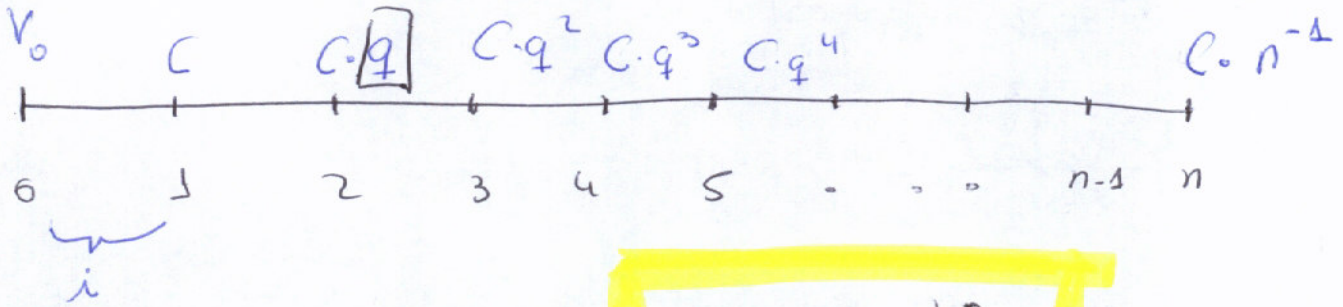 V₀ C C·q C·q² C·q³ C·q⁴ C·n⁻¹
0 1 2 3 4 5 . . . n-1 n
i